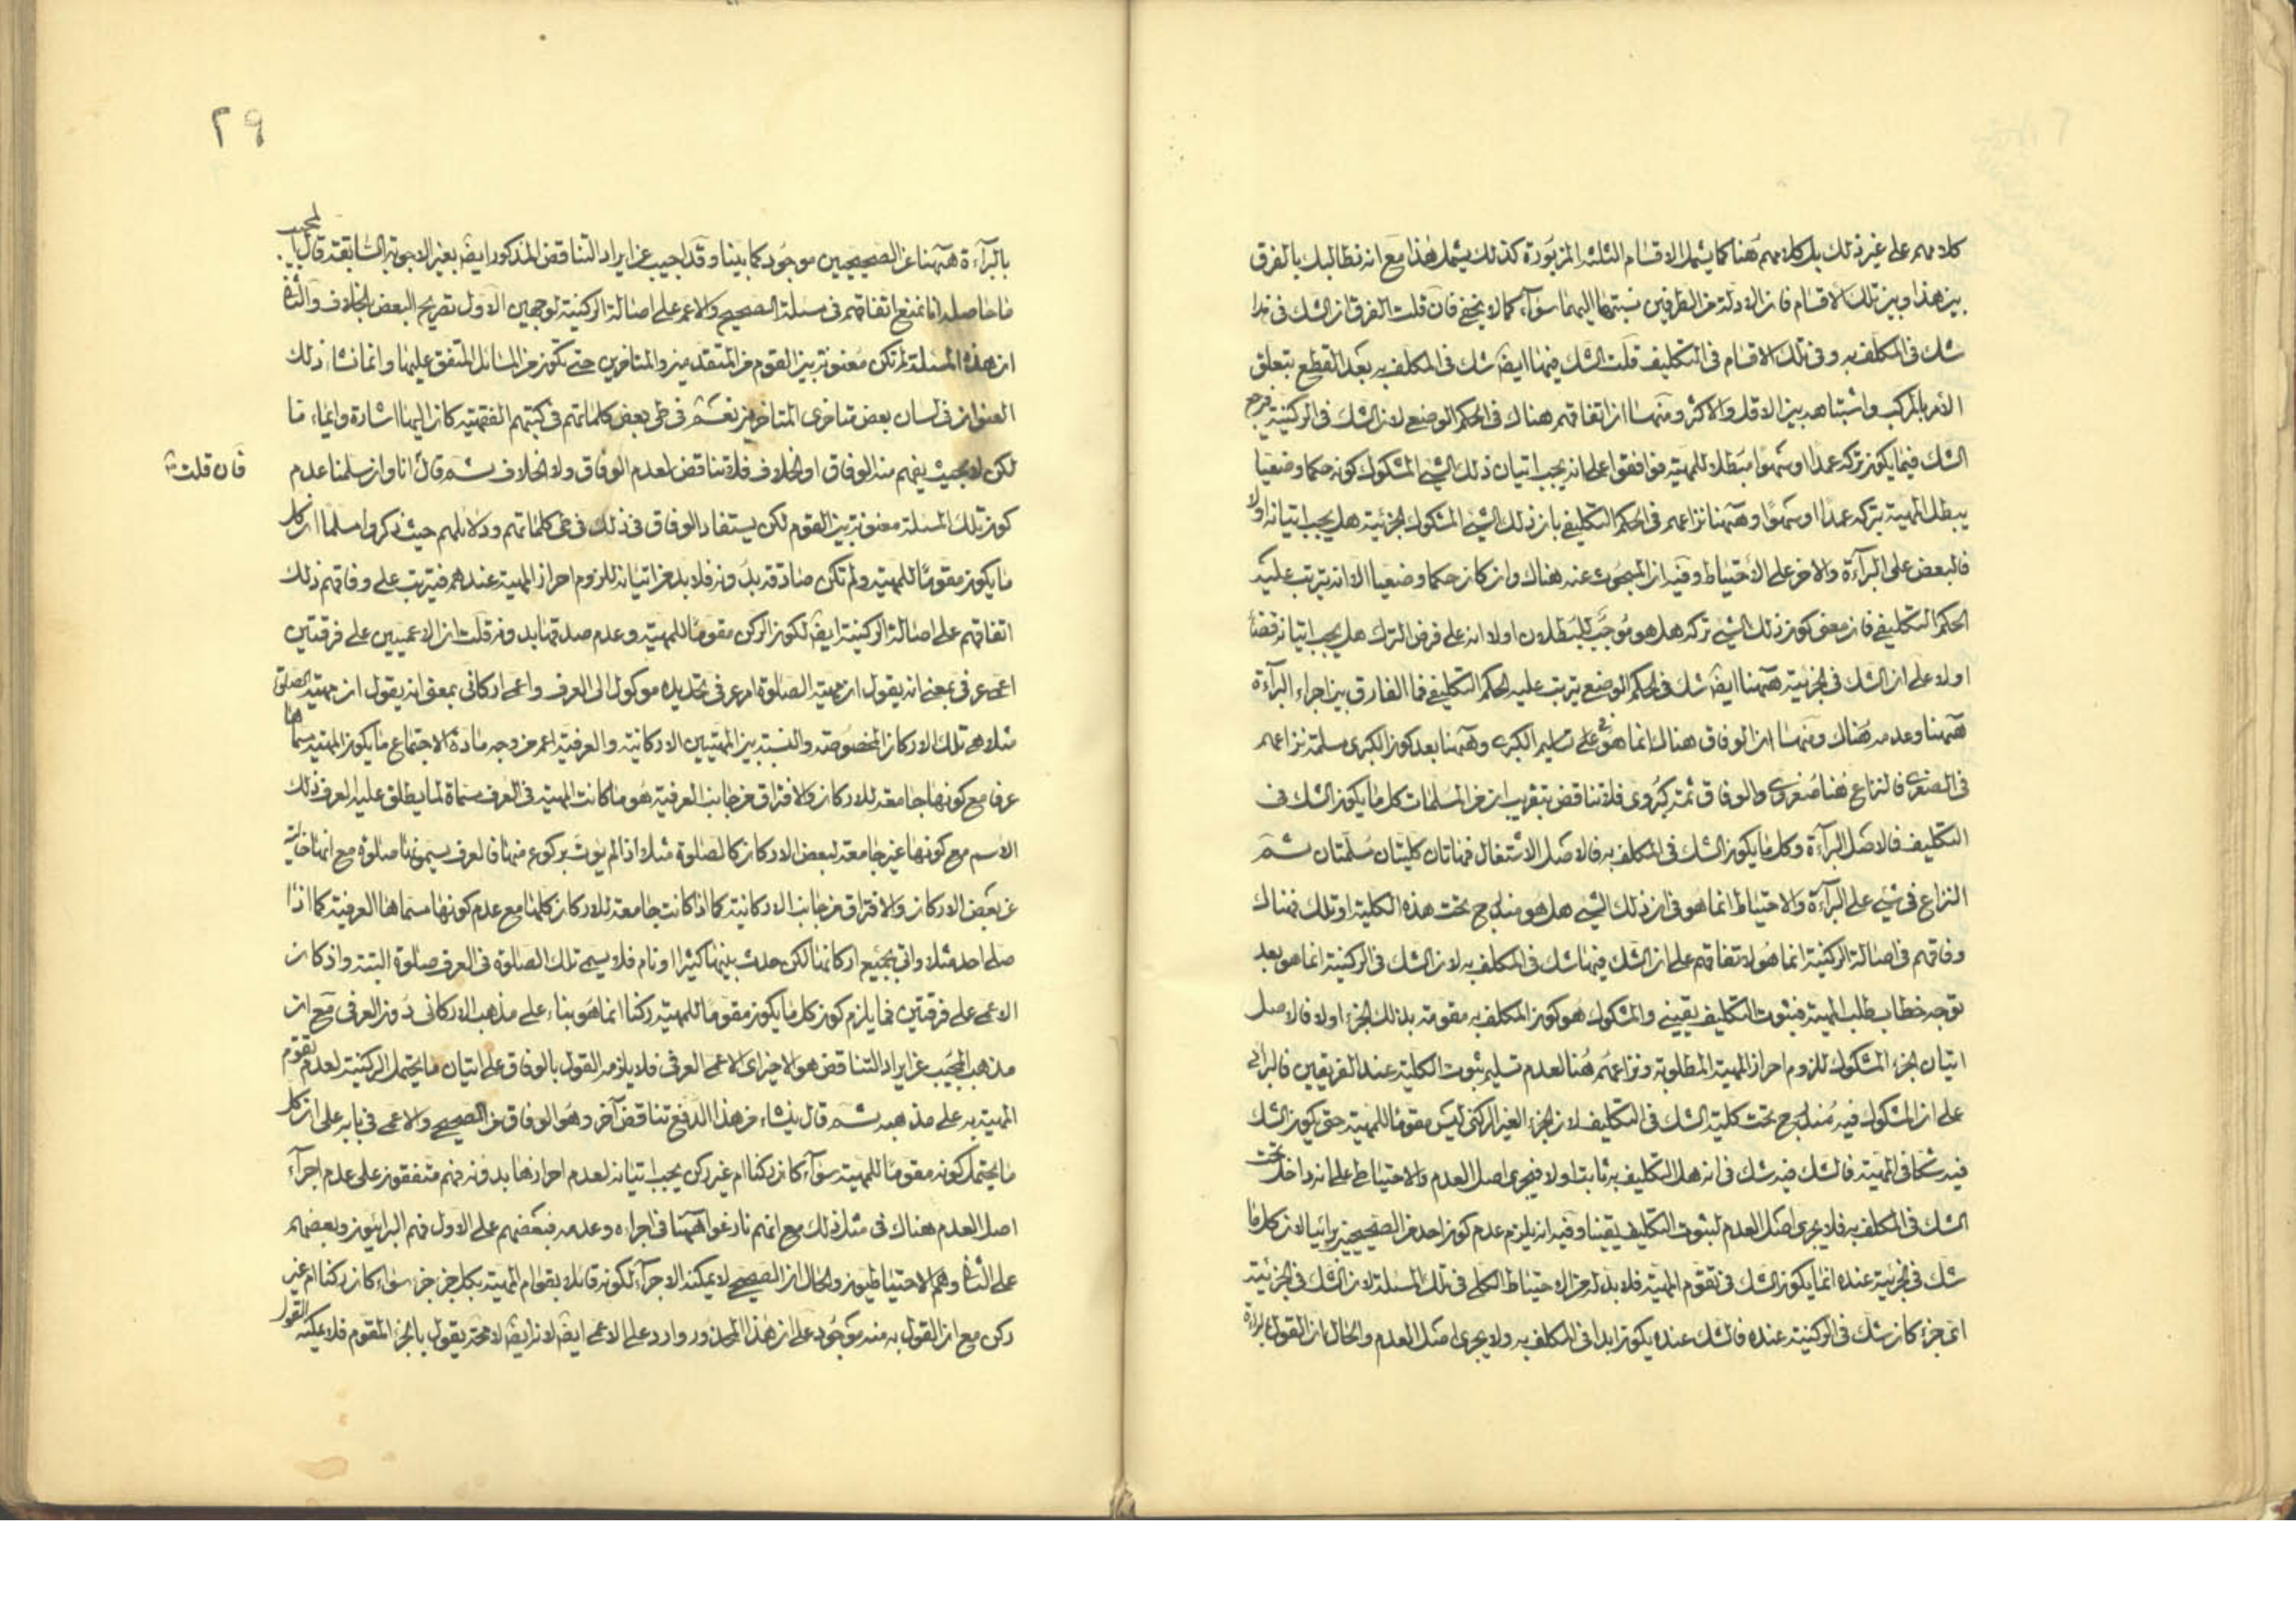 كلامهم على غير ذلك بل كلامهم هنا كما يشمل الاقسام الثلثة المزبورة كذلك يشمل هذا مع انه نطالبك بالفرق
بين هذا وبين تلك الاقسام فان الادلة من الطرفين نسبتها اليهما سوآء كما لا يخفى فان قلت الفرق ان الشك في هذا
شك في المكلف به وفي تلك الاقسام في التكليف قلت الشك فيها ايضا شك في المكلف به بعد القطع بتعلق
الامر بالمركب واشتباهه بين الاقل والاكثر ومنها ان اتفاقهم هناك في الحكم الوضعي لان الشك في الركنية مرجع
الشك فيما يكون تركه عمدا او سهوا مبطلا للمهية فوافقوا على انه يجب اتيان ذلك الشيء المشكوك كونه حكما وضعيا
يبطل المهية بتركه عمدًا او سهوًا وههنا نزاعهم في الحكم التكليفي بان ذلك الشيء المشكوك الجزئية هل يجب اتيانه اولا
فالبعض على البرآءة والاخر على الاحتياط وفيه ان المبحوث عنه هناك وان كان حكما وضعيا الا انه يترتب عليه
الحكم التكليفي فان معنى كون ذلك الشيء تركه هل هو موجب للبطلان اولا انه على فرض الترك هل يجب اتيانه قضاء
اولا على ان الشك في الجزئية ههنا ايضا شك في الحكم الوضعي يترتب عليه الحكم التكليفي فما الفارق بين اجراء البرآءة
ههنا وعدمه هناك ومنها ان الوفاق هناك انما هو في على تسليم الكبرى وههنا بعد كون الكبرى مسلمة نزاعهم
في الصغرى فالنزاع هنا صغروى والوفاق ثمة كبروى فلا تناقض بتقريب ان من المسلمات كل ما يكون الشك في
التكليف فالاصل البرآءة وكل ما يكون الشك في المكلف به فالاصل الاشتغال فهاتان كليتان مسلمتان ثم
النزاع في شيء على البرآءة والاحتياط انما هو في ان ذلك الشيء هل هو مندرج تحت هذه الكلية او تلك فهناك
وفاقهم في اصالة الركنية انما هو لاتفاقهم على ان الشك فيها شك في المكلف به لان الشك في الركنية انما هو بعد
توجه خطاب طلب المهية فثبوت التكليف يقيني والمشكوك هو كون المكلف به مقومة بذلك الجزء اولا فالاصل
اتيان الجزء المشكوك للزوم احراز المهية المطلوبة ونزاعهم هنا لعدم تسليم ثبوت الكلية عند الفريقين فالبرائى
على ان المشكوك فيه مندرج تحت كلية الشك في التكليف لان الجزء الغير الركني ليس مقوما للمهية حتى يكون الشك
فيه شكا في المهية فالشك فيه شك في انه هل التكليف به ثابت اولا فيجرى اصل العدم والاحتياطى على انه داخل تحت
الشك في المكلف به فلا يجرى اصل العدم لثبوت التكليف يقينا وفيه انه يلزم عدم كون احد من الصحيحيين برائيا لان كل ما
شك في الجزئية عنده انما يكون الشك في تقوم المهية فلا بد له من الاحتياط الكلى في تلك المسئلة لان الشك في الجزئية
اى جزء كان شك في الركنية عنده فالشك عنده يكون ابدا في المكلف به ولا يجرى اصل العدم والحال ان القول
٢٩
بالبرآءة ههنا عن الصحيحيين موجود كما بينا وقد اجيب عن ايراد التناقض المذكور ايضا بغير الاجوبة السابقة قال المجيب
ما حاصله انا نمنع اتفاقهم في مسئلة الصحيح والاعم على اصالة الركنية لوجهين الاول تصريح البعض بالخلاف والثاني
ان هذه المسئلة لم تكن معنونة بين القوم من المتقدمين والمتاخرين حتى تكون من المسائل المتفق عليها وانما نشا ذلك
العنوان في لسان بعض متاخرى المتاخرين نعم في طى بعض كلماتهم في كتبهم الفقهية كان اليها اشارة وايماء ما
لكن لا بحيث يفهم منه الوفاق او الخلاف فلا تناقض لعدم الوفاق ولا الخلاف ثم قال انا وان سلمنا عدم
فان قلت
كون تلك المسئلة معنونة بين القوم لكن يستفاد الوفاق في ذلك في كلماتهم ودلايلهم حيث ذكروا مسلما ان كل
ما يكون مقوما للمهية ولم تكن صادقة بدونه فلا بد من اتيانه للزوم احراز المهية عندهم فيترتب على وفاقهم ذلك
اتفاقهم على اصالة الركنية ايضا لكون الركن مقوما للمهية وعدم صدقها بدونه قلت ان الاعميين على فرقتين
اعمى عرفى بمعنى انه يقول ان مهية الصلوة امر عرفى تحديده موكول الى العرف واعمى اركانى بمعنى انه يقول ان مهية الصلوة
مثلا هى تلك الاركان المخصوصة والنسبة بين المهيتين الاركانية والعرفية اعم من وجه مادة الاجتماع ما يكون المهية مسماها
عرفا مع كونها جامعة للاركان والافتراق من جانب العرفية هو ما كانت المهية في العرف مسماة لما يطلق عليه العرف ذلك
الاسم مع كونها غير جامعة لبعض الاركان كالصلوة مثلا اذا لم يؤت بركوع منها فالعرف يسمونها صلوة مع انها خالية
عن بعض الاركان والافتراق من جانب الاركانية كما اذا كانت جامعة للاركان كلها مع عدم كونها مسماها العرفية كما اذا
صلى احد مثلا واتى بجميع اركانها لكن حدث بينها كثيرا او نام فلا يسمى تلك الصلوة في العرف صلوة البتة واذ كان
الاعمى على فرقتين فما يلزم كون كل ما يكون مقوما للمهية ركنا انما هو بناء على مذهب الاركانى دون العرفى مع ان
مذهب المجيب عن ايراد التناقض هو الاخير اى الاعمى العرفى فلا يلزمه القول بالوفاق على اتيان ما يحتمل الركنية لعدم تقوم
المهية به على مذهبه ثم قال ينشاء من هذا الدفع تناقض آخر وهو الوفاق من الصحيحى والاعمى في بابه على ان كل
ما يحتمل كونه مقوما للمهية سوآء كان ركنا ام غير ركن يجب اتيانه لعدم احرازها بدونه فهم متفقون على عدم اجرآء
اصل العدم هناك في مثل ذلك مع انهم نازعوا ههنا في اجراءه وعدمه فبعضهم على الاول فهم البرائيون وبعضهم
على الثاني وهم الاحتياطيون والحال ان الصحيحى لا يمكنه الاجرآء لكونه قائلا بقوام المهية بكل جزء جزء سواء كان ركنا ام غير
ركن مع ان القول به منه موجود على ان هذا المحذور وارد على الاعمى ايضا لانه ايضا لا محة يقول بالجزء المقوم فلا يمكنه القول